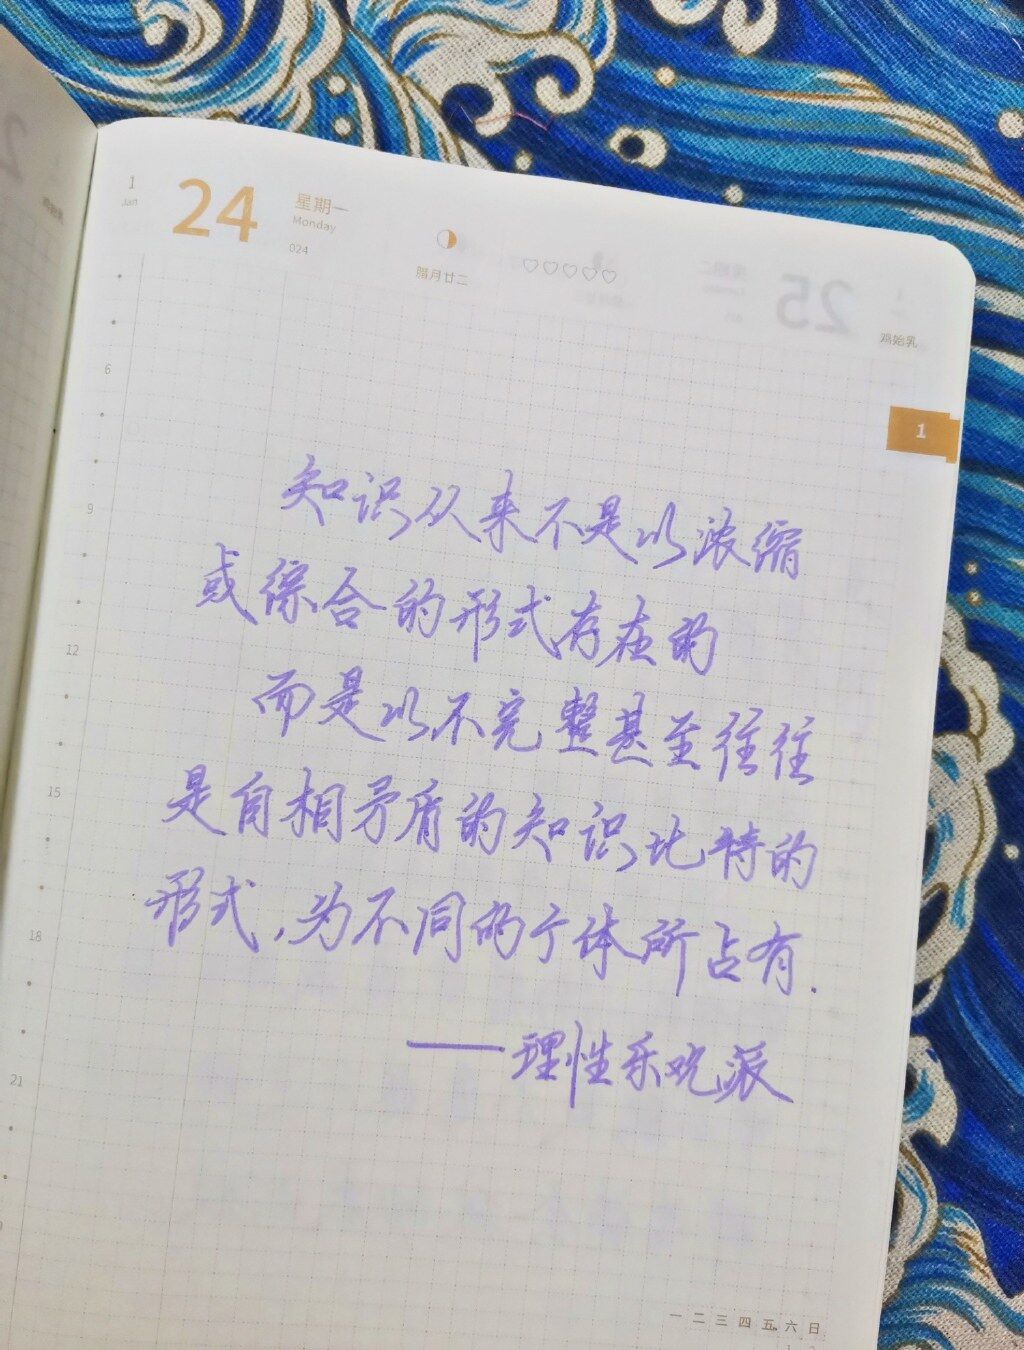 1
Jan
24
星期一
Monday
024
腊月廿二
25
鸡始乳
1
6
9
12
15
18
21
知识从来不是以浓缩
或综合的形式存在的
而是以不完整甚至往往
是自相矛盾的知识比特的
形式,为不同的个体所占有.
——理性乐观派
一 二 三 四 五 六 日
1 2